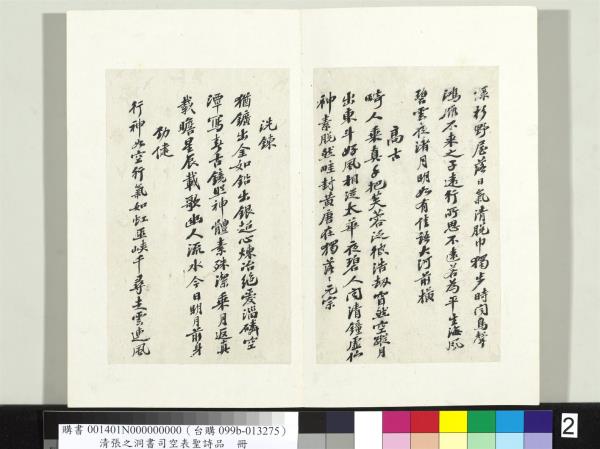 深杉野屋落日氣清脫巾獨步時聞鳥聲
鴻雁不來之子遠行所思不遠若為平生海風
碧雲夜渚月明如有佳語大河前橫
高古
畸人乘真手把芙蓉泛彼浩劫窅然空蹤月
出東斗好風相從太華夜碧人聞清鐘虛佇
神素脫然畦封黃唐在獨落落元宗
洗鍊
猶鑛出金如鉛出銀超心煉冶絕愛淄磷空
潭寫春古鏡照神體素殊潔乘月返真
載瞻星辰載歌幽人流水今日明月前身
勁健
行神如空行氣如虹巫峽千尋走雲連風
購書 001401N000000000 (台購 099b-013275)
清張之洞書司空表聖詩品 冊
2